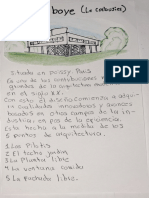 boye (Le corbusier)
Situada en poissy París
Es una de las contribuciones
de la arquitectura
en el siglo XX.
Con esto el diseño comienza a adqui-
calidades innovadoras y avances
basados en otros campos de la in-
dustria en pos de la eficiencia.
Esta hecha a la medida de los
puntos de arquitectura.
1 Los Pilotis
2 El techo jardin
3 La Planta libre
4 La ventana corrida
5 La Fachada libre.